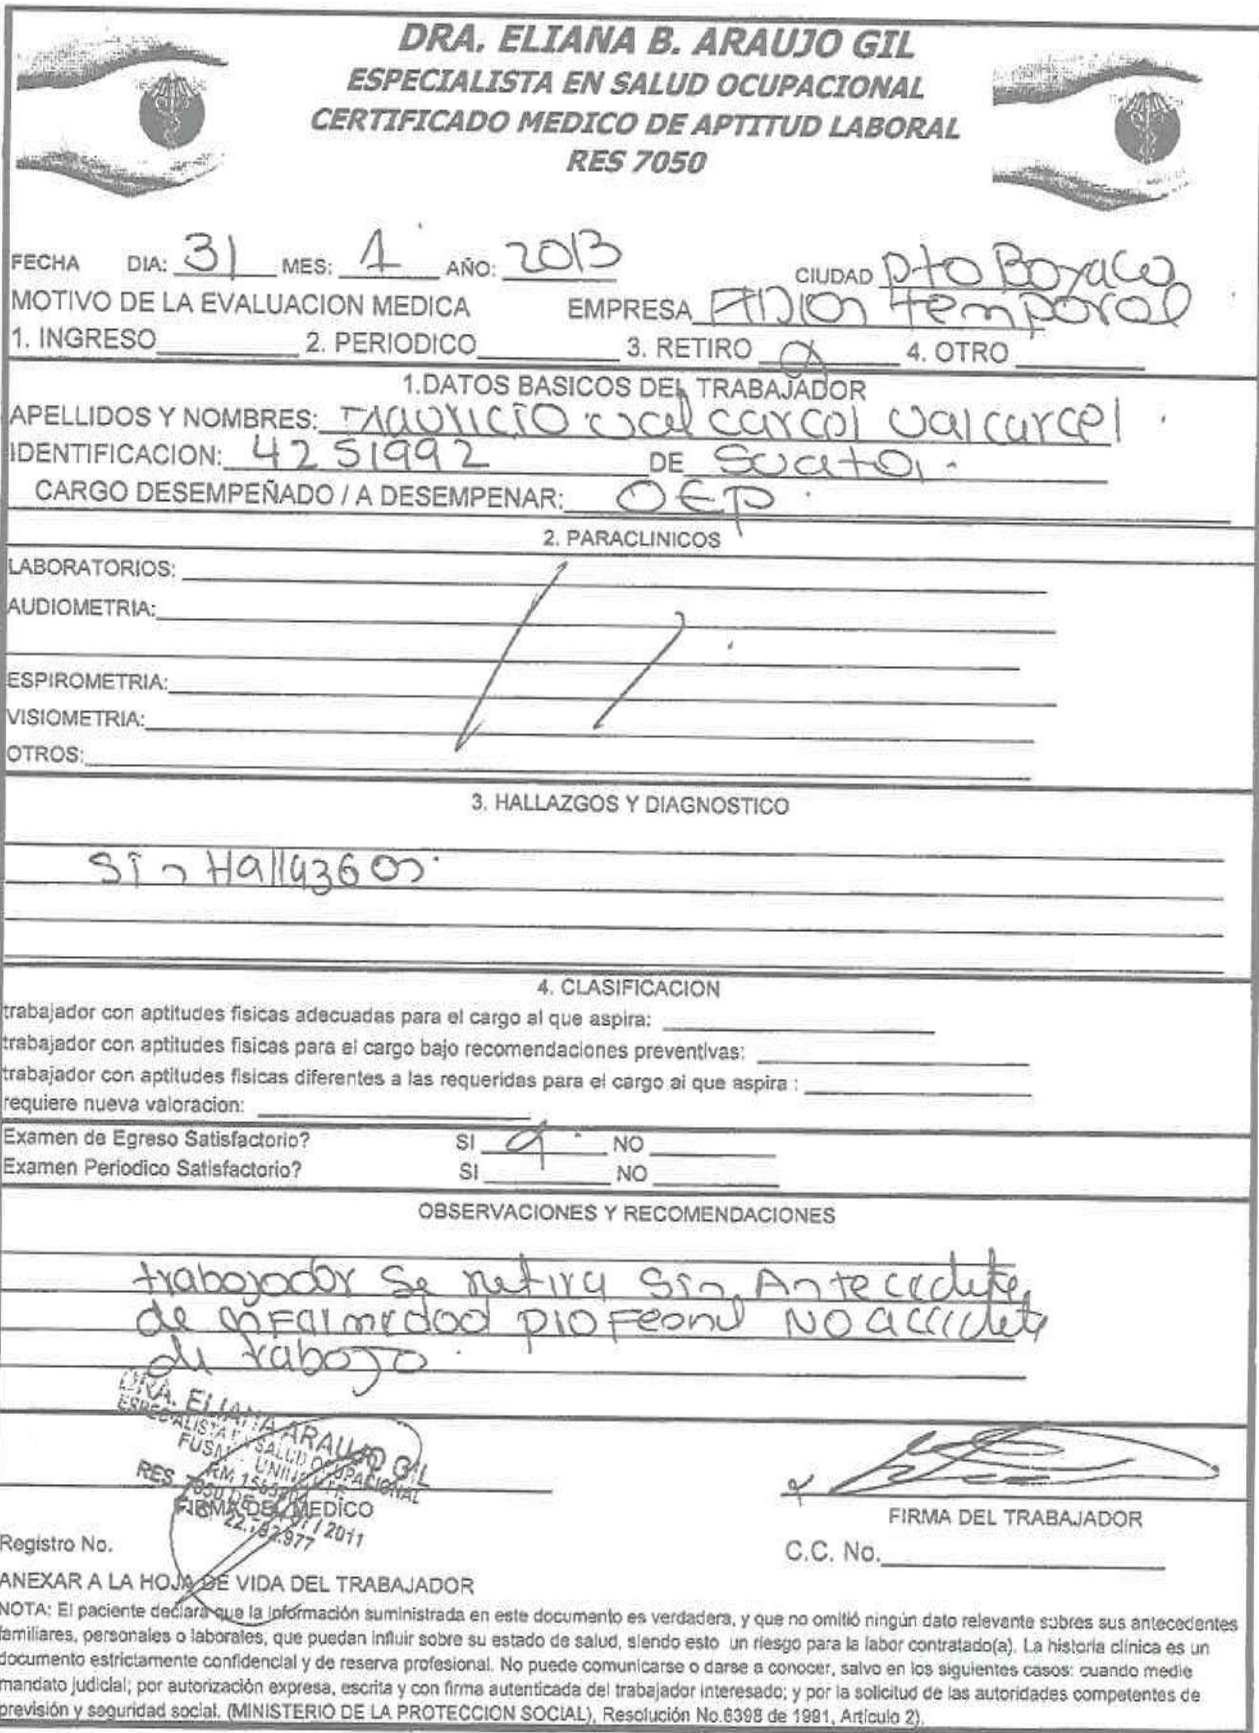 DRA. ELIANA B. ARAUJO GIL
ESPECIALISTA EN SALUD OCUPACIONAL
CERTIFICADO MEDICO DE APTITUD LABORAL
RES 7050
FECHA DIA: 31 MES: 1 AÑO: 2013 CIUDAD Pto Boyaca
MOTIVO DE LA EVALUACION MEDICA EMPRESA temporal
1. INGRESO 2. PERIODICO 3. RETIRO X 4. OTRO
1.DATOS BASICOS DEL TRABAJADOR
APELLIDOS Y NOMBRES: Mauricio Valcarcel Valcarcel
IDENTIFICACION: 4251992 DE
CARGO DESEMPEÑADO / A DESEMPENAR: OEP.
2. PARACLINICOS
LABORATORIOS:
AUDIOMETRIA:
ESPIROMETRIA:
VISIOMETRIA:
OTROS:
3. HALLAZGOS Y DIAGNOSTICO
Sin Hallazgos.
4. CLASIFICACION
trabajador con aptitudes fisicas adecuadas para el cargo al que aspira:
trabajador con aptitudes fisicas para el cargo bajo recomendaciones preventivas:
trabajador con aptitudes fisicas diferentes a las requeridas para el cargo al que aspira :
requiere nueva valoracion:
Examen de Egreso Satisfactorio? SI X NO
Examen Periodico Satisfactorio? SI NO
OBSERVACIONES Y RECOMENDACIONES
trabajador se retira sin Antecedente
de enfermedad profesional NO accidente
de trabajo.
DRA. ELIANA ARAUJO GIL
ESPECIALISTA EN SALUD OCUPACIONAL
FIRMA DEL MEDICO
FIRMA DEL TRABAJADOR
Registro No. C.C. No.
ANEXAR A LA HOJA DE VIDA DEL TRABAJADOR
NOTA: El paciente declara que la información suministrada en este documento es verdadera, y que no omitió ningún dato relevante sobres sus antecedentes
familiares, personales o laborales, que puedan influir sobre su estado de salud, siendo esto un riesgo para la labor contratado(a). La historia clínica es un
documento estrictamente confidencial y de reserva profesional. No puede comunicarse o darse a conocer, salvo en los siguientes casos: cuando medie
mandato judicial; por autorización expresa, escrita y con firma autenticada del trabajador interesado; y por la solicitud de las autoridades competentes de
previsión y seguridad social. (MINISTERIO DE LA PROTECCION SOCIAL), Resolución No.6398 de 1991, Articulo 2).